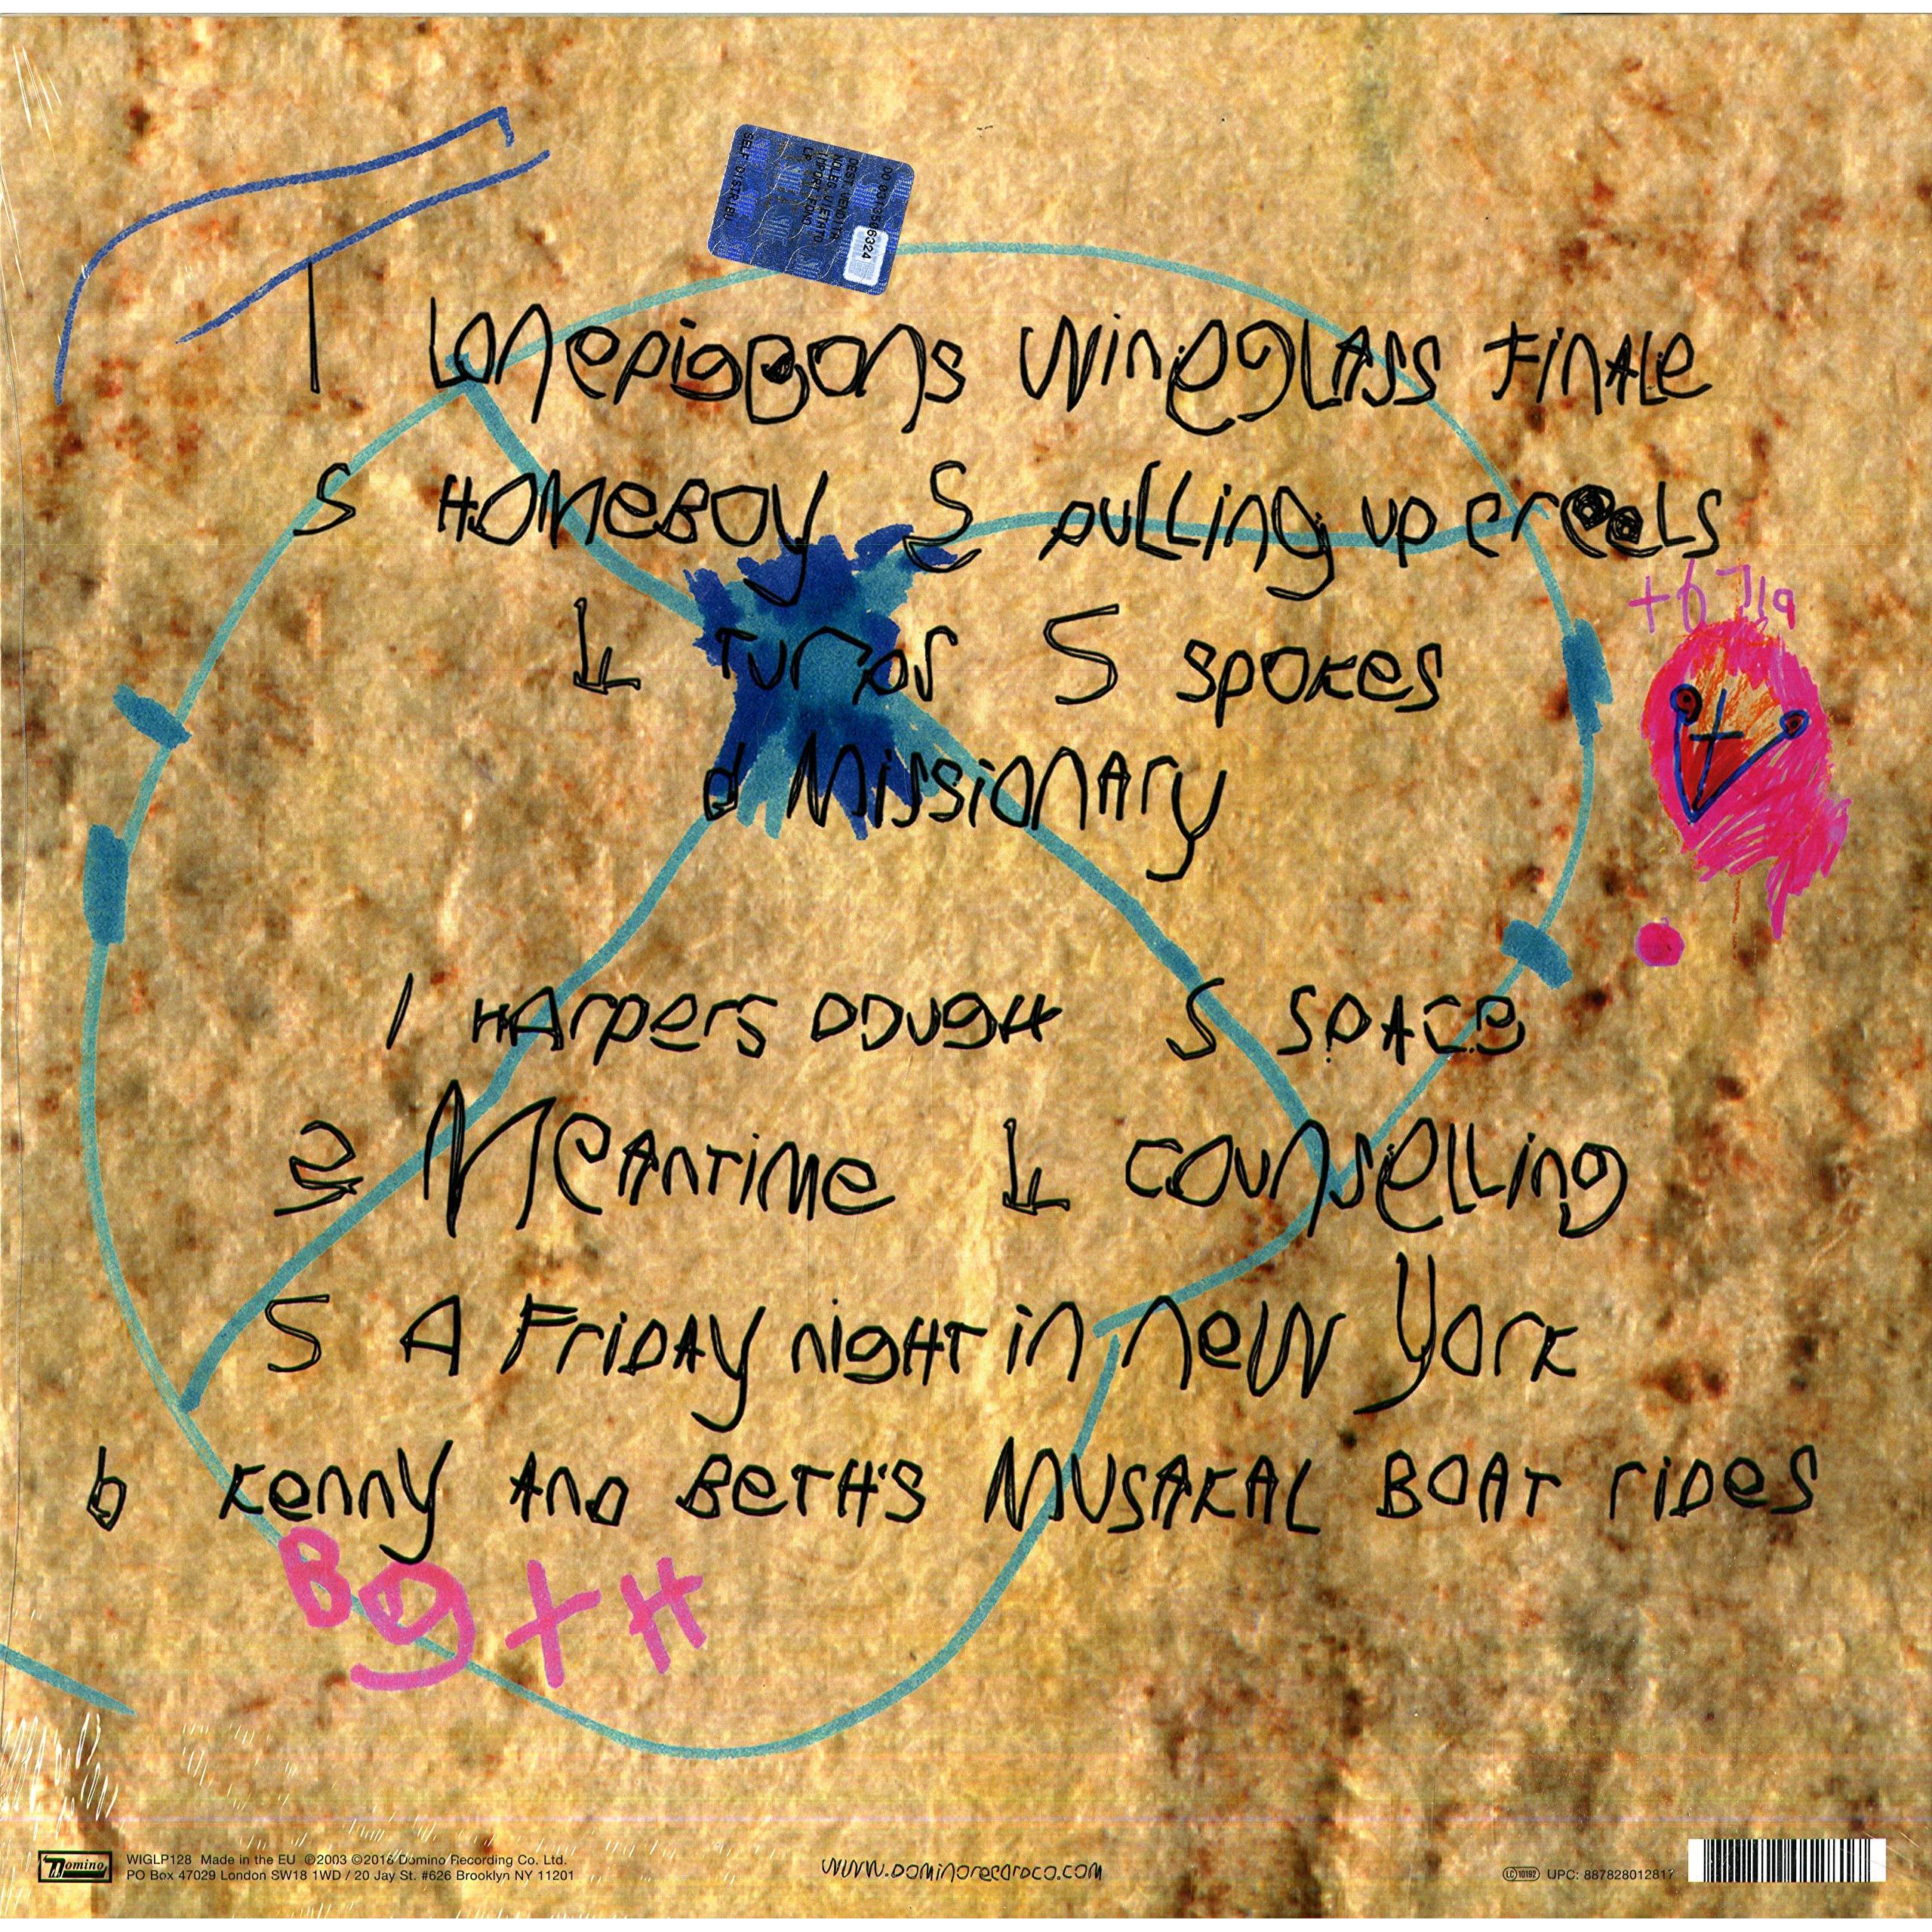 DEST. VENDITA
NOLEG. VIETATO
SELF DISTRIBU
6324
1 LONepigeons wineglass FinALe
S HOMeBOY S pulling up creels
TUrnps S spokes
d Missionary
1 HArpers DOUgH S SPACe
MeAnTime counselling
S A FriDAy nigHT in new York
b Kenny AnD BeTH'S MUSAKAL BOAT riDes
BeTH
Domino
WIGLP128 Made in the EU ℗2003 ©2018 Domino Recording Co. Ltd.
PO Box 47029 London SW18 1WD / 20 Jay St. #626 Brooklyn NY 11201
www.dominorecordco.com
LC 10192 UPC: 887828012817